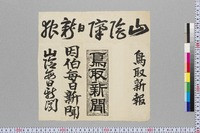 山陰隂日新報
鳥取新報
鳥取新聞
因伯毎日新聞
山陰毎日新聞